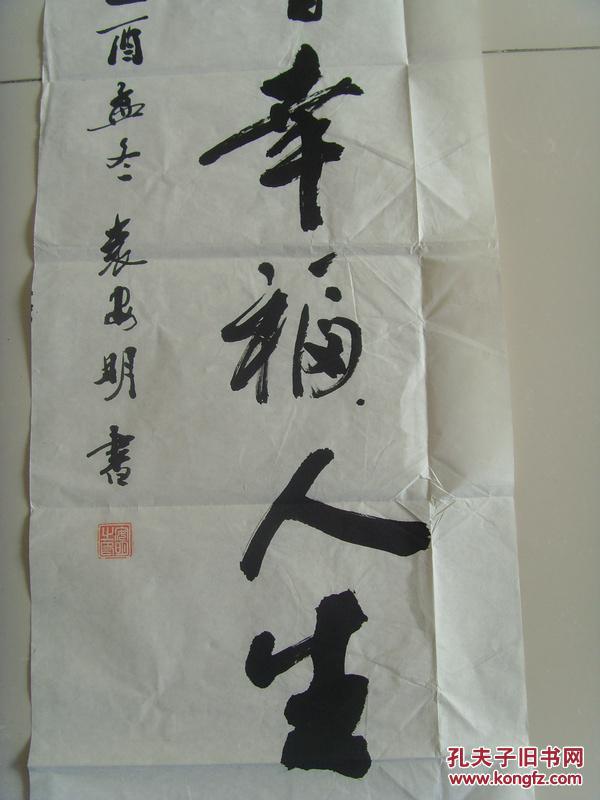 幸福人生
酉孟冬 袁安明 书
孔夫子旧书网
www.kongfz.com